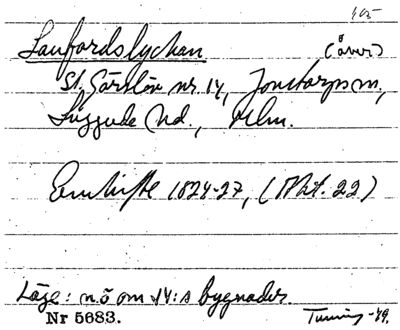 165
Lanfordslyckan (åker)
St. Görslöv nr. 14, Jonstorps sn.,
Luggude hd., Mlm.
Enskifte 1824-27, (Akt. 22)
Läge: nö om 14:s bygnader.
Nr 5683.